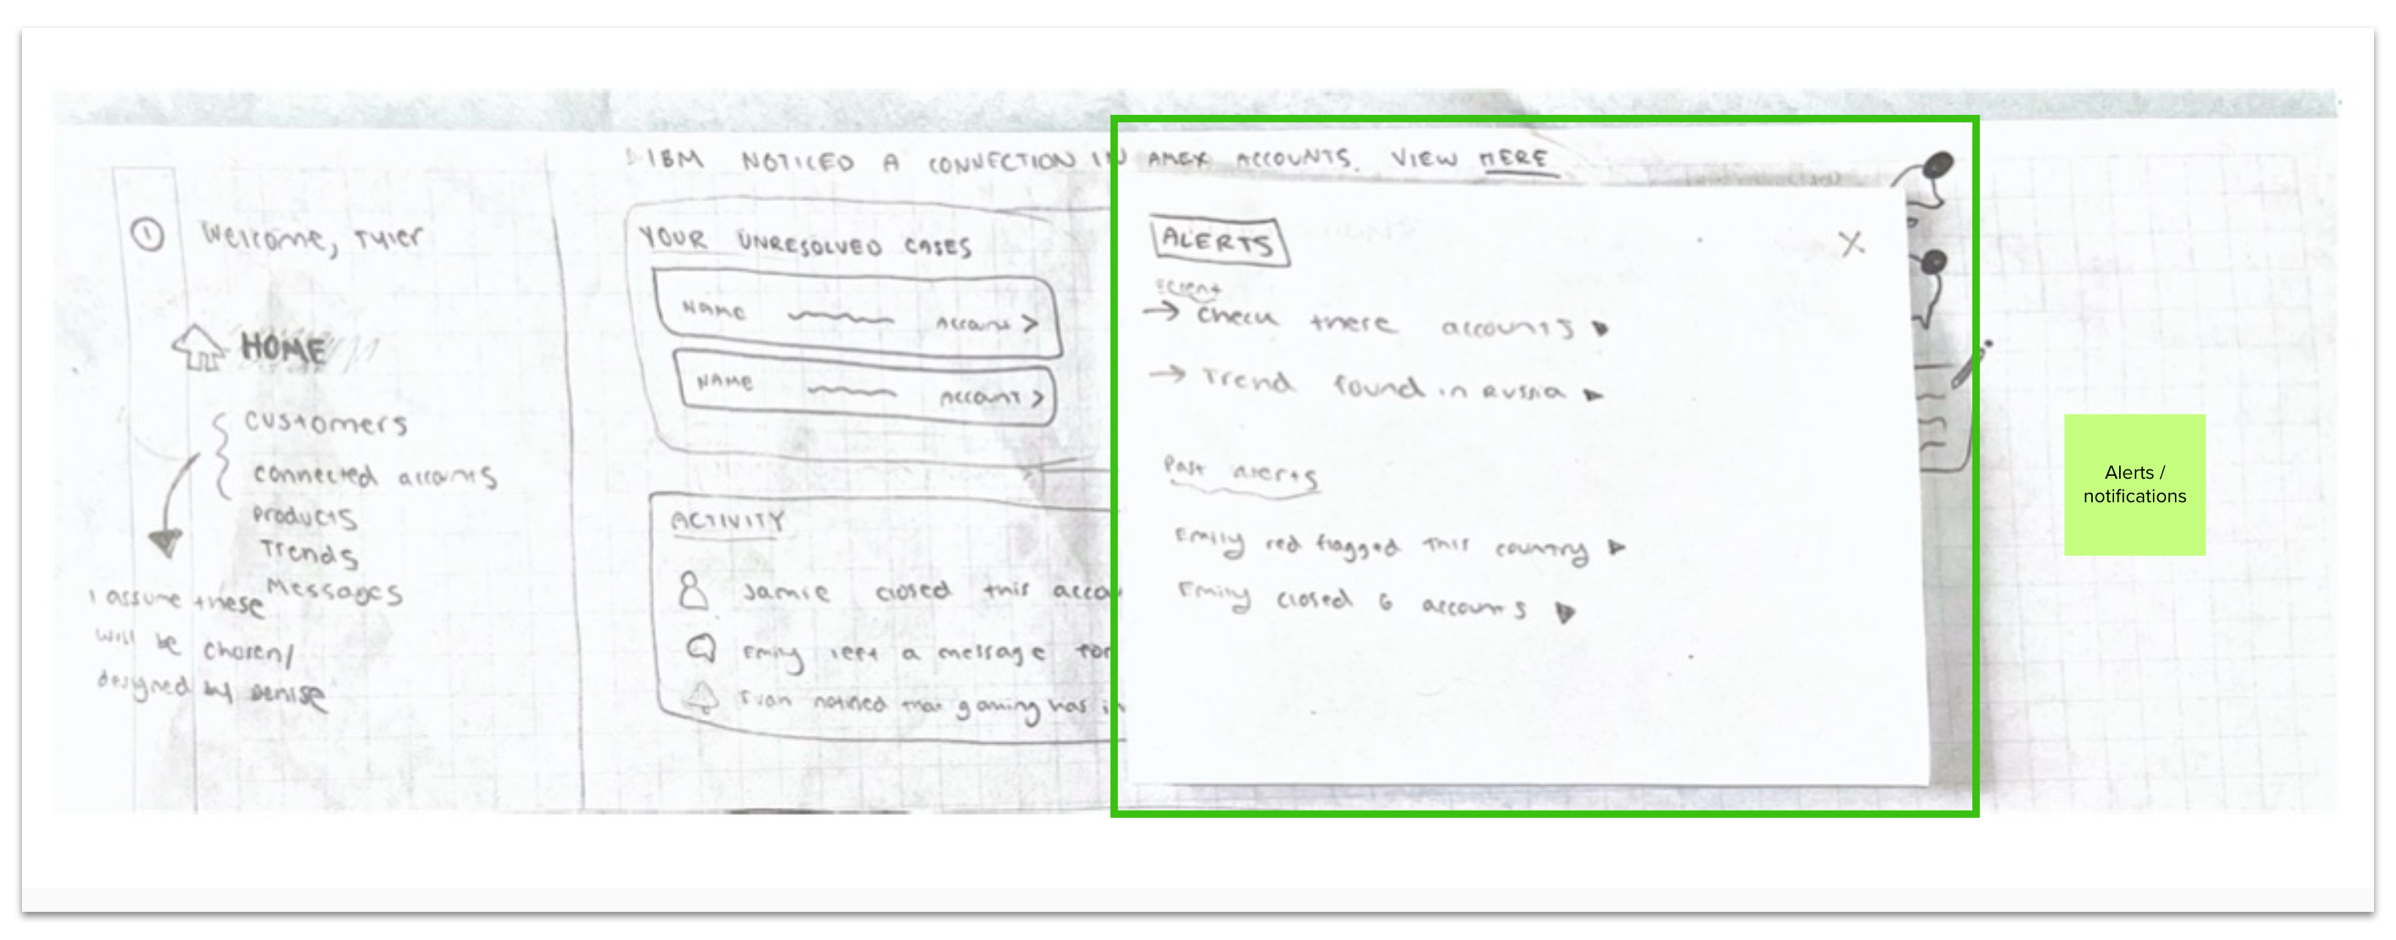 IBM NOTICED A CONNECTION IN AMEX ACCOUNTS. VIEW HERE
1
Welcome, Tyler
HOME
customers
connected accounts
products
Trends
Messages
I assume these
will be chosen/
designed by Denise
YOUR UNRESOLVED CASES
NAME Account >
NAME Account >
ACTIVITY
Jamie closed this acco
Emily left a message for
Evan noticed that gaming has in
ALERTS
X
recent
→ Check there accounts
→ Trend found in Russia
Past alerts
Emily red flagged this country
Emily closed 6 accounts
Alerts /
notifications